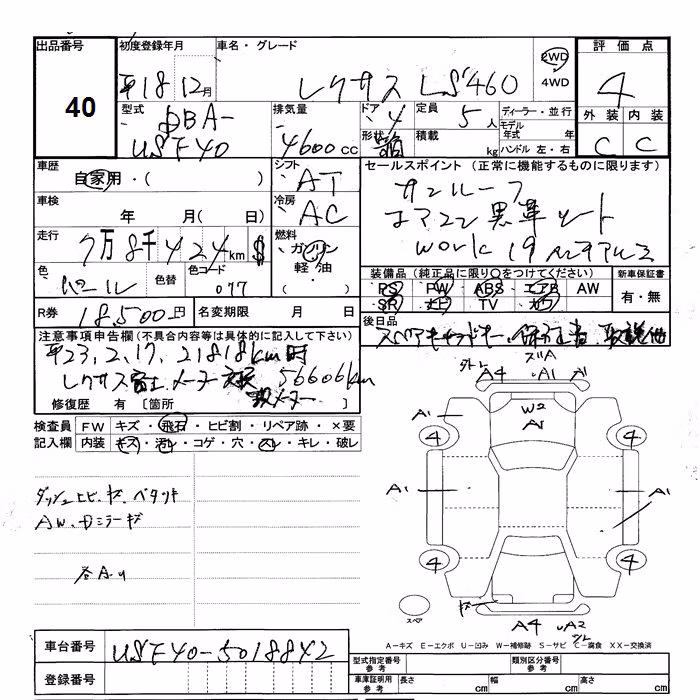 出品番号 初度登録年月 車名・グレード 評価点
40 平18 12月 レクサス LS460 2WD 4WD 4
型式 DBA-USF40 排気量 4600cc ドア 4 形状 定員 5人 積載 kg ディーラー・並行 モデル年式 年 ハンドル 左・右
外装 内装
C C
車歴 自家用・( )
シフト AT
セールスポイント (正常に機能するものに限ります)
サンルーフ
エアコン 黒革シート
work 19
車検 年 月( 日)
冷房 AC
走行 7万8千424km $
燃料 ガソリン 軽油 ( ・ )
色 パール 色替 色コード 077
装備品 (純正品に限り○をつけてください) 新車保証書
PS PW ABS エアB AW 有・無
SR TV
R券 18,500円 名変期限 月 日
後日品
スペアキー 保証書 取説他
注意事項申告欄(不具合内容等は具体的に記入して下さい)
平23.2.17. 21818km時
レクサス富士 メーター交換 56606km
現メーター
修復歴 有 [箇所 ]
検査員記入欄 FW キズ・飛石・ヒビ割・リペア跡・×要
内装 キズ・汚れ・コゲ・穴・スレ・キレ・破レ
ダッシュヒビ、キズ、ベタツキ
AW、Dミラーキズ
各A・U
A4 A1 A1
スリA
A1 W2 A1
4 4
A1 A1
4 4
スペア
キズ A4 A2
A-キズ E-エクボ U-凹み W-補修跡 S-サビ C-腐食 XX-交換済
車台番号 USF40-5018842
登録番号
型式指定番号 参考 類別区分番号 参考
車庫証明用 参考 長さ cm 幅 cm 高さ cm